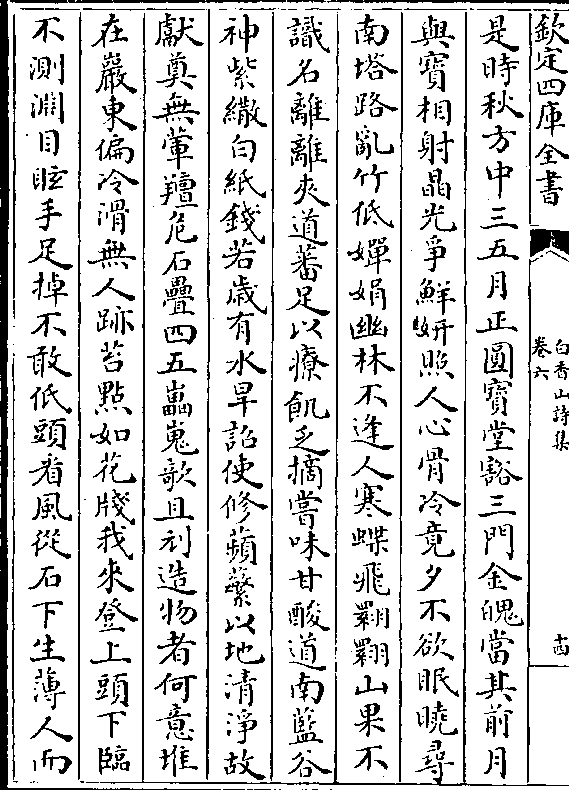 欽定四庫全書
白香山詩集
卷六
十四
是時秋方中三五月正圓寶堂豁三門金魄當其前月
與寶相射晶光爭鮮妍照人心骨冷竟夕不欲眠曉尋
南塔路亂竹低嬋娟幽林不逢人寒蝶飛翾翾山果不
識名離離夾道蕃足以療飢乏摘嘗味甘酸道南藍谷
神紫繖白紙錢若歲有水旱詔使修蘋蘩以地清淨故
獻奠無葷羶危石疊四五㠥嵬欹且刓造物者何意堆
在巖東偏冷滑無人跡苔點如花牋我來登上頭下臨
不測淵目眩手足掉不敢低頭看風從石下生薄人而